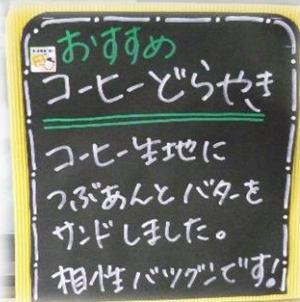 おすすめ
コーヒーどらやき
コーヒー生地に
つぶあんとバターを
サンドしました。
相性バツグンです!